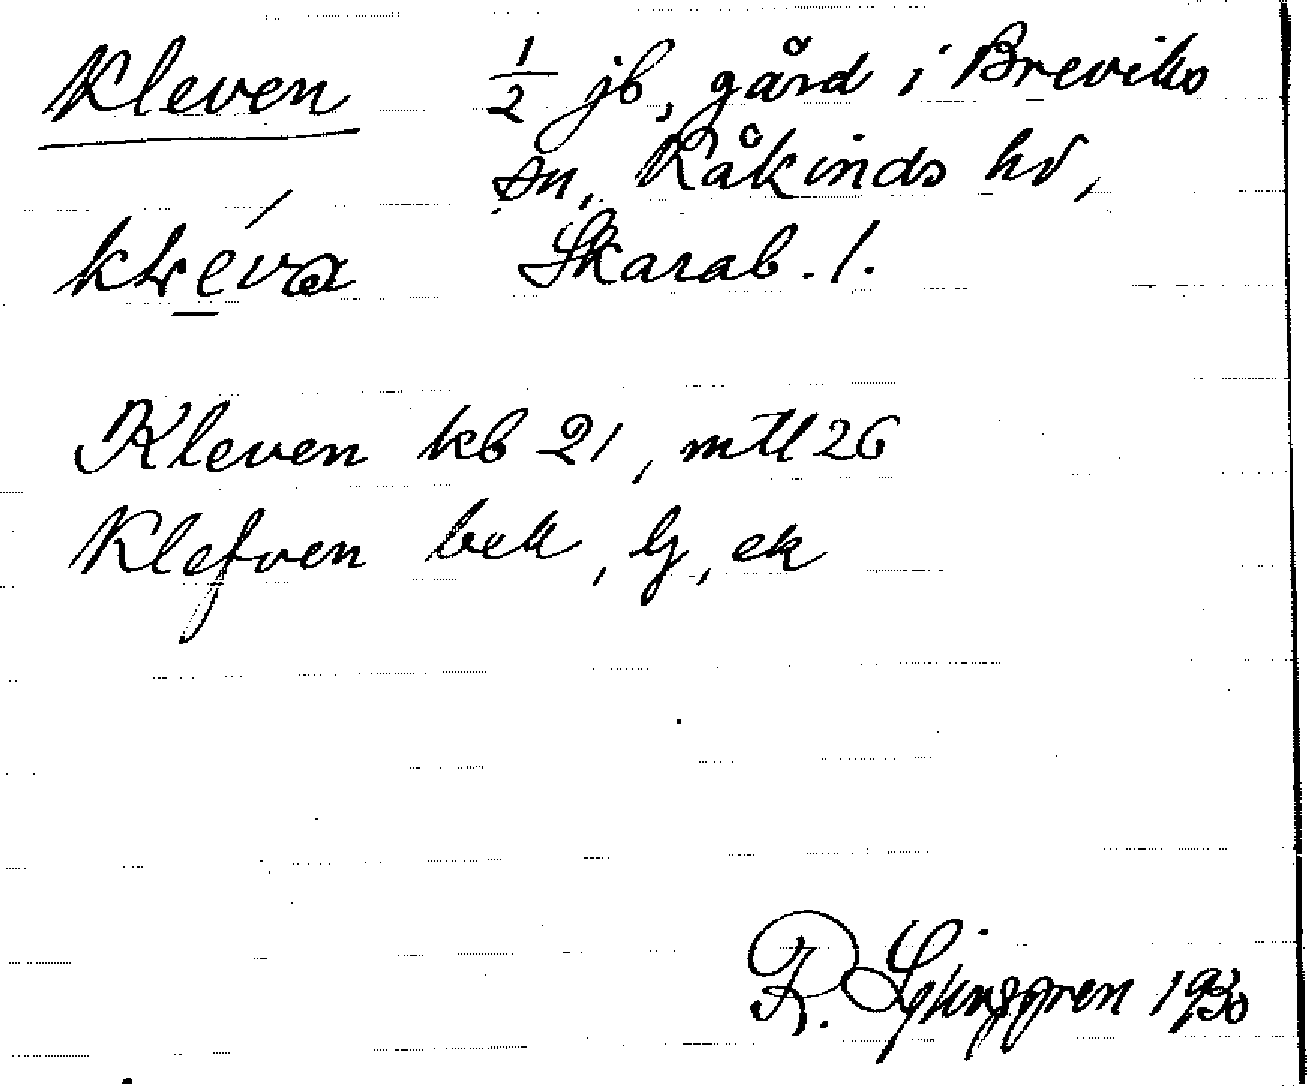 Kleven ½ jb, gård i Breviks
sn, Kåkinds hd,
Skarab. l.
Kleven kb 21, mtl 26
Klefven bek, lj, ek
R. Ljunggren 1930